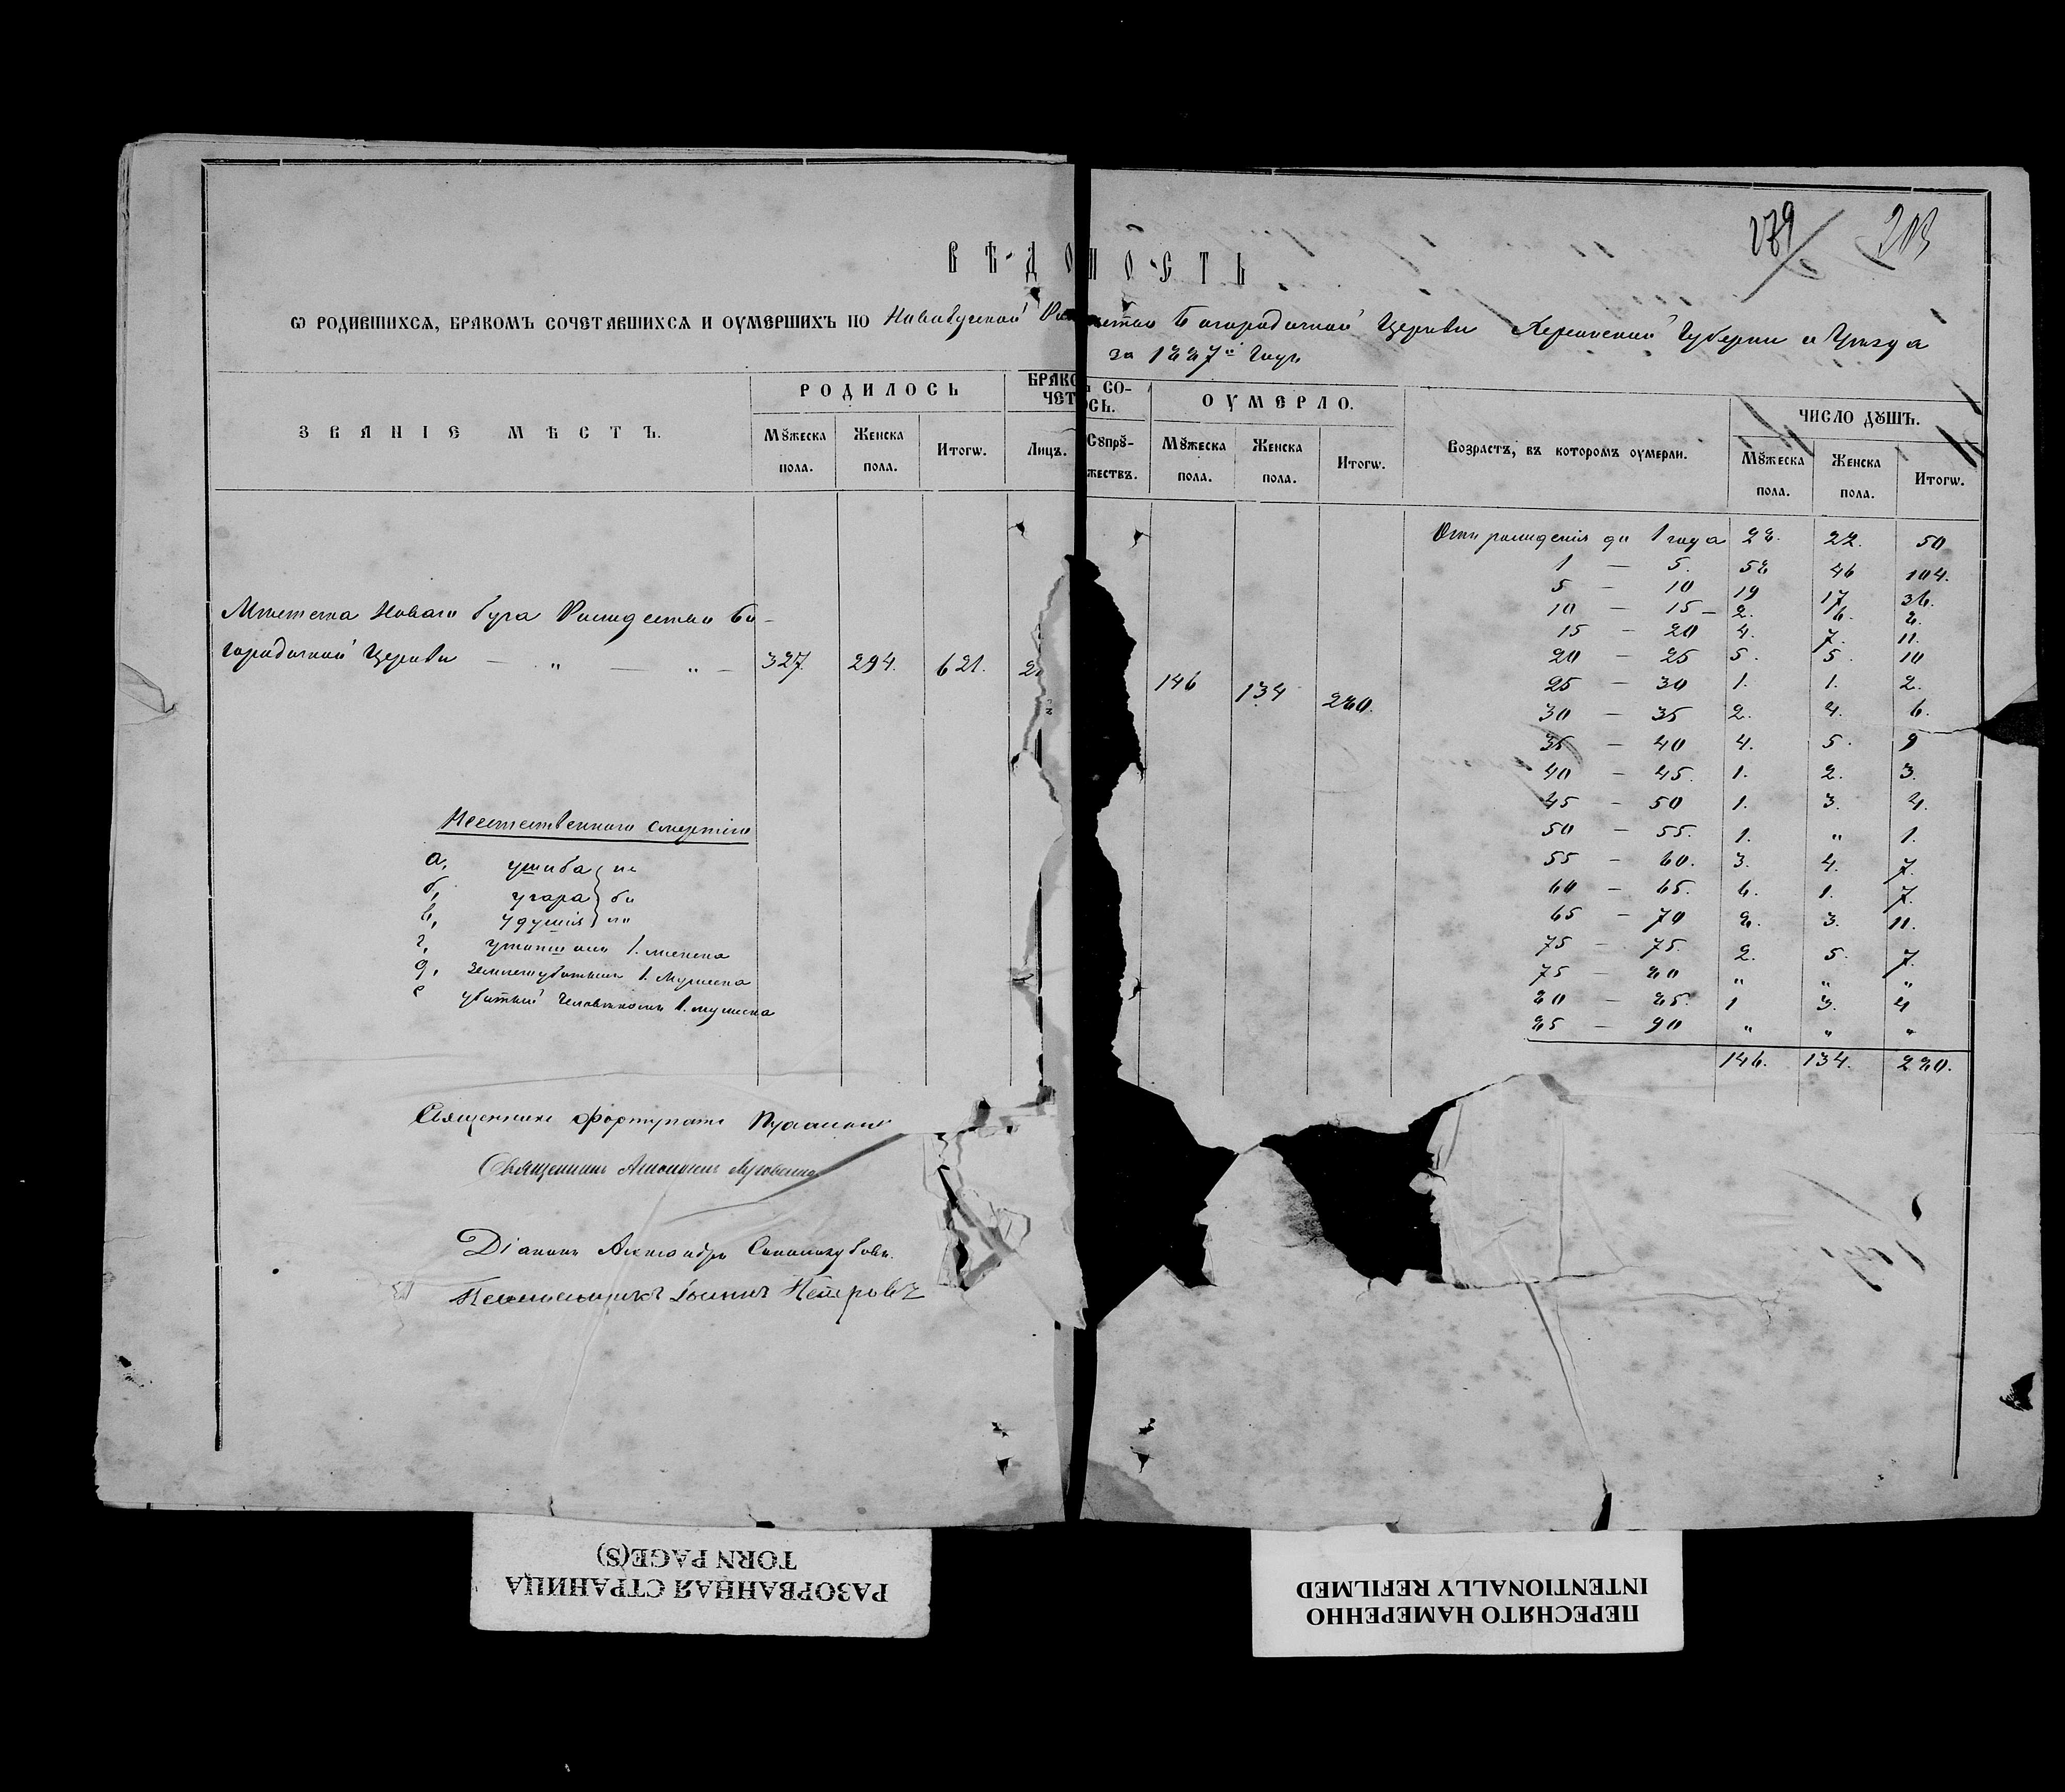 279 203
ВѢДОМОСТЬ
Ѡ РОДИВШИХСѦ, БРАКОМЪ СОЧЕТАВШИХСѦ И ОУМЕРШИХЪ ПО Новобугской Рождество Богородичной Церкви Херсонской Губерніи и Уѣзда
за 1887й годъ
ЗВАНІЕ МѢСТЪ.
РОДИЛОСЬ
Мꙋжеска пола.
Женска пола.
Итогѡ.
БРАКОМЪ СОЧЕТАЛОСЬ.
Лицъ.
Сꙋпрꙋжествъ.
ОУМЕРЛО.
Мꙋжеска пола.
Женска пола.
Итогѡ.
Возрастъ, въ которомъ оумерли.
ЧИСЛО ДꙊШЪ.
Мꙋжеска пола.
Женска пола.
Итогѡ.
Мѣстечка Новаго Буга Рождество Бо-
городичной Церкви — „ — „ — 327. 294. 621. 146 134 280.
Отъ рожденія до 1 года 28. 22. 50
1 — 5. 58 46 104.
5 — 10 19 17. 36.
10 — 15 — 2. 6. 8.
15 — 20 4. 7. 11.
20 — 25 5. 5. 10
25 — 30 1. 1. 2.
30 — 35 2. 4. 6.
35 — 40 4. 5. 9
40 — 45. 1. 2. 3.
45 — 50 1. 3. 4.
50 — 55. 1. „ 1.
55 — 60. 3. 4. 7.
60 — 65. 6. 1. 7.
65 — 70 8. 3. 11.
75 — 75. 2. 5. 7.
75 — 80 „ „ „
80 — 85. 1 3. 4
85 — 90 „ „ „
146. 134. 280.
Неестественною смертію
а, ушиба не
б, угара бы
в, удушія ло
г, утопшихъ 1. женска
д, 1. Мужеска
е убитый человѣкомъ 1. мужеска
Священникъ Фортунатъ
Священникъ
Діаконъ Александръ
Псаломщикъ Іоаннъ Петровъ
РАЗОРВАННАЯ СТРАНИЦА
TORN PAGE(S)
ПЕРЕСНЯТО НАМЕРЕННО
INTENTIONALLY REFILMED